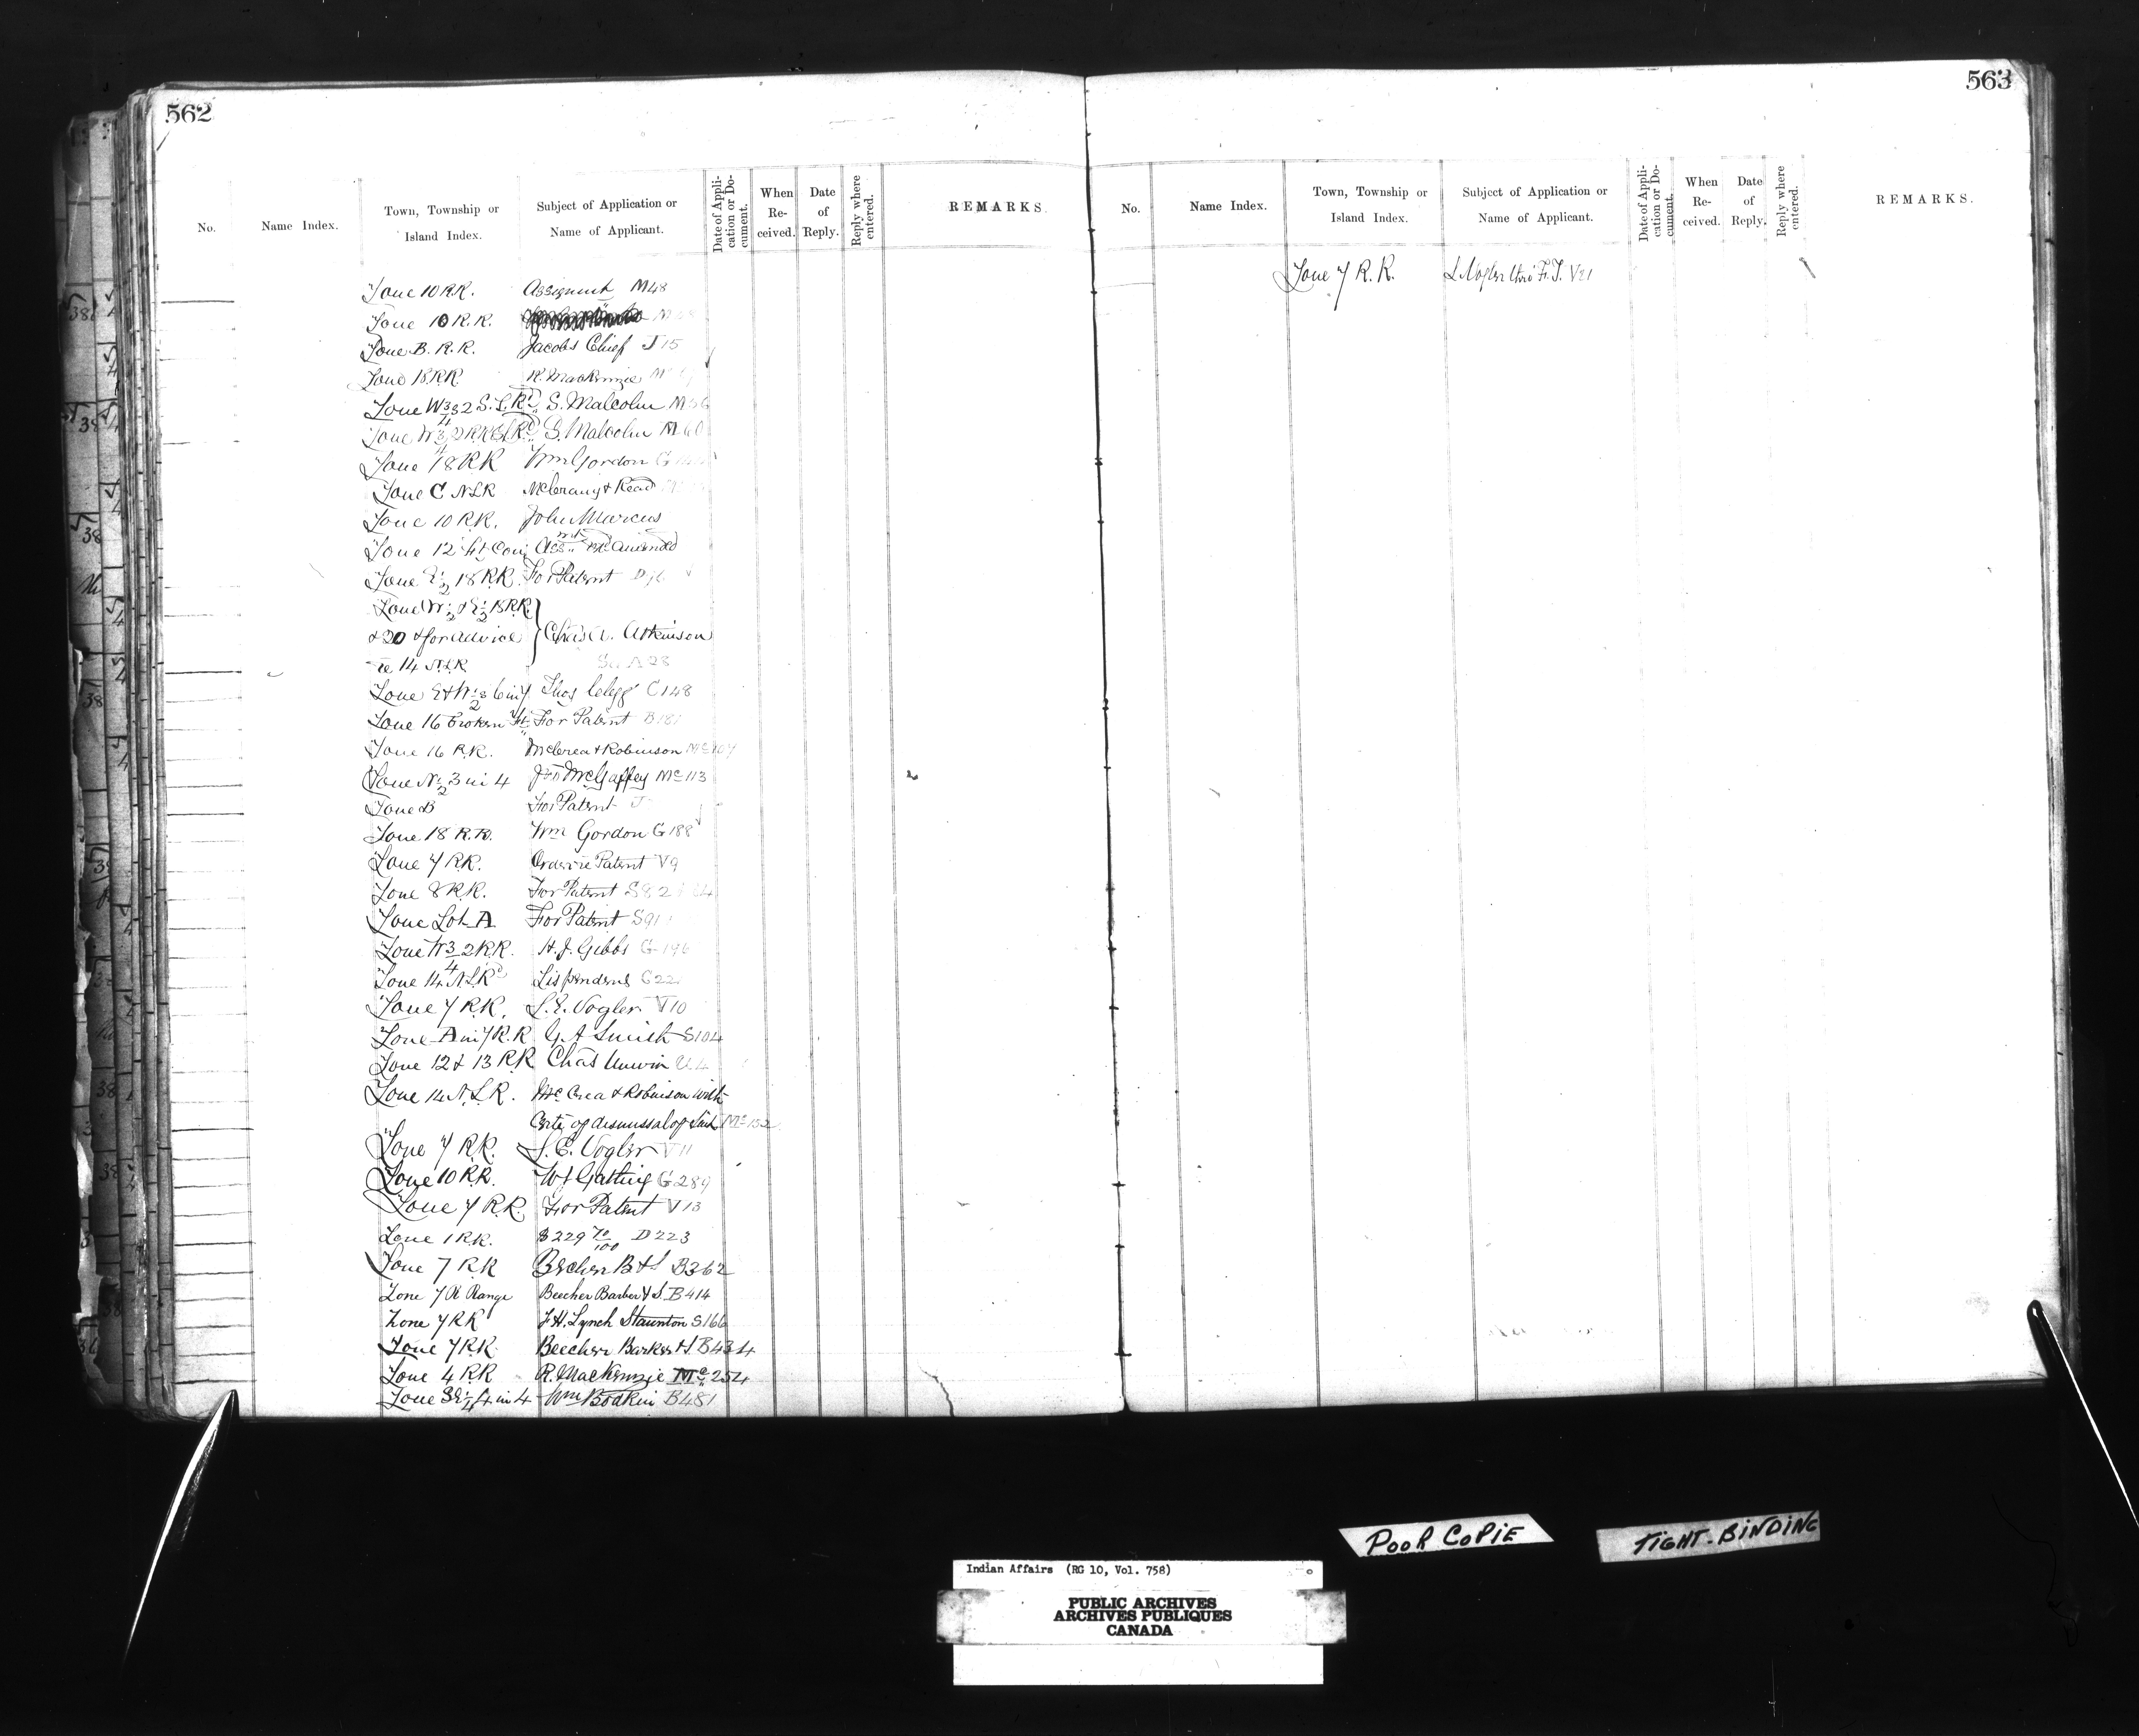 562
No.
Name Index.
Town, Township or Island Index.
Subject of Application or Name of Applicant.
Date of Application or Document.
When Received.
Date of Reply.
Reply where entered.
REMARKS.
Zone 10 R.R. Assignmt M48
Zone 10 R.R.
Zone B. R. R. Jacobs Chief J15
Zone 18 R.R. R. MacKenzie Mc
Zone W 3/4 2 S.L.Rd. S. Malcolm M56
Zone W 3/4 2 R.R. S. Malcolm M60
Zone 18 RR Wm Gordon G
Zone C NLR McCrany & Read
Zone 10 R.R. John Marcus
Zone 12 4th Con Assnmt
Zone E 1/2 18 R.R. For Patent D76
Zone W 1/2 & E 1/2 18 R.R.
& 20 & for advice Chas A. Atkinson
re 14 N.L.R A 28
Zone E & W 1/2s 6 in 7 Thos Clegg C148
Zone 16 Broken Ft For Patent B181
Zone 16 R.R. McCrea & Robinson Mc 107
Zone N 1/2 3 in 4 Jno McGaffey Mc 113
Zone B For Patent J
Zone 18 R.R. Wm Gordon G188
Zone 7 R.R. Order re Patent V9
Zone 8 R.R. For Patent S82
Zone Lot A For Patent S91
Zone W 3/4 2 R.R. H.J. Gibbs G 196
Zone 14 NLRd Lis pendens C22
Zone 7 R.R. S.E. Vogler V10
Zone A in 7 R.R G. A Smith S104
Zone 12 & 13 R.R Chas Unwin U4
Zone 14 N.L.R. McCrea & Robinson with
Certe of dismissal of Suit Mc 152
Zone 7 R.R. S. E. Vogler V11
Zone 10 R.R. W F Gatting G 289
Zone 7 R.R. For Patent V13
Zone 1 R.R. $229 70/100 D223
Zone 7 R.R Beecher B & S B362
Zone 7 R Range Beecher Barker & S. B414
Zone 7 RR F.H. Lynch Staunton S166
Zone 7 R.R Beecher Barker & S B434
Zone 4 RR R. MacKenzie Mc 254
Zone SE 1/4 4 in 4 Wm Bodkin B481
563
No.
Name Index.
Town, Township or Island Index.
Subject of Application or Name of Applicant.
Date of Application or Document.
When Received.
Date of Reply.
Reply where entered.
REMARKS.
Zone 7 R.R. S Vogler thro' F.T. V21
POOR COPIE
TIGHT-BINDING
Indian Affairs (RG 10, Vol. 758)
PUBLIC ARCHIVES
ARCHIVES PUBLIQUES
CANADA